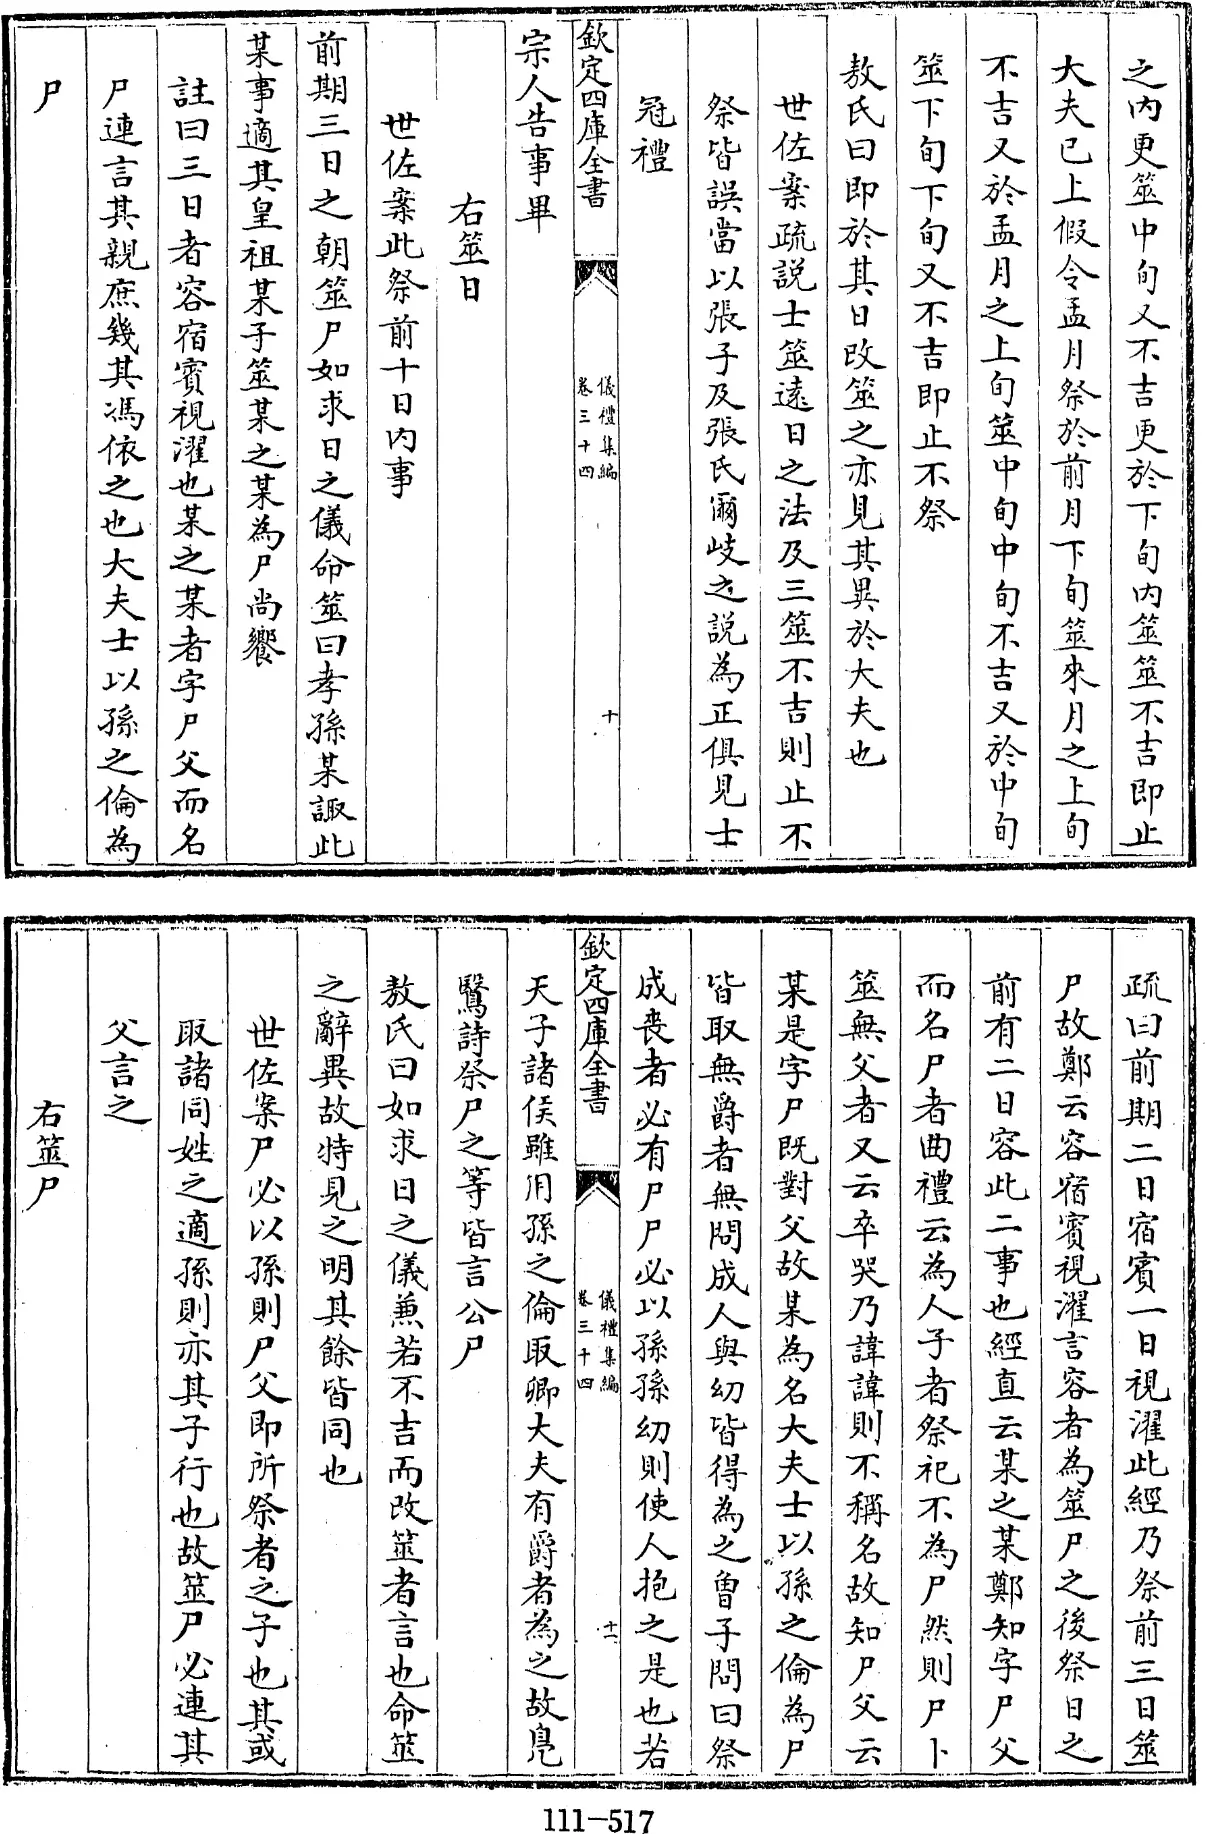 之内更筮中旬又不吉更於下旬内筮筮不吉即止
大夫已上假令孟月祭於前月下旬筮來月之上旬
不吉又於孟月之上旬筮中旬中旬不吉又於中旬
筮下旬下旬又不吉即止不祭
敖氏曰即於其日改筮之亦見其異於大夫也
世佐案疏說士筮遠日之法及三筮不吉則止不
祭皆誤當以張子及張氏爾岐之說為正俱見士
冠禮
欽定四庫全書
儀禮集編
卷三十四
十
宗人告事畢
右筮日
世佐案此祭前十日内事
前期三日之朝筮尸如求日之儀命筮曰孝孫某諏此
某事適其皇祖某子筮某之某為尸尚饗
註曰三日者容宿賓視濯也某之某者字尸父而名
尸連言其親庶幾其馮依之也大夫士以孫之倫為
尸
疏曰前期二日宿賓一日視濯此經乃祭前三日筮
尸故鄭云容宿賓視濯言容者為筮尸之後祭日之
前有二日容此二事也經直云某之某鄭知字尸父
而名尸者曲禮云為人子者祭祀不為尸然則尸卜
筮無父者又云卒哭乃諱諱則不稱名故知尸父云
某是字尸既對父故某為名大夫士以孫之倫為尸
皆取無爵者無問成人與幼皆得為之曾子問曰祭
成喪者必有尸尸必以孫孫幼則使人抱之是也若
欽定四庫全書
儀禮集編
卷三十四
十一
天子諸侯雖用孫之倫取卿大夫有爵者為之故鳧
鷖詩祭尸之等皆言公尸
敖氏曰如求日之儀兼若不吉而改筮者言也命筮
之辭異故特見之明其餘皆同也
世佐案尸必以孫則尸父即所祭者之子也其或
取諸同姓之適孫則亦其子行也故筮尸必連其
父言之
右筮尸
111-517